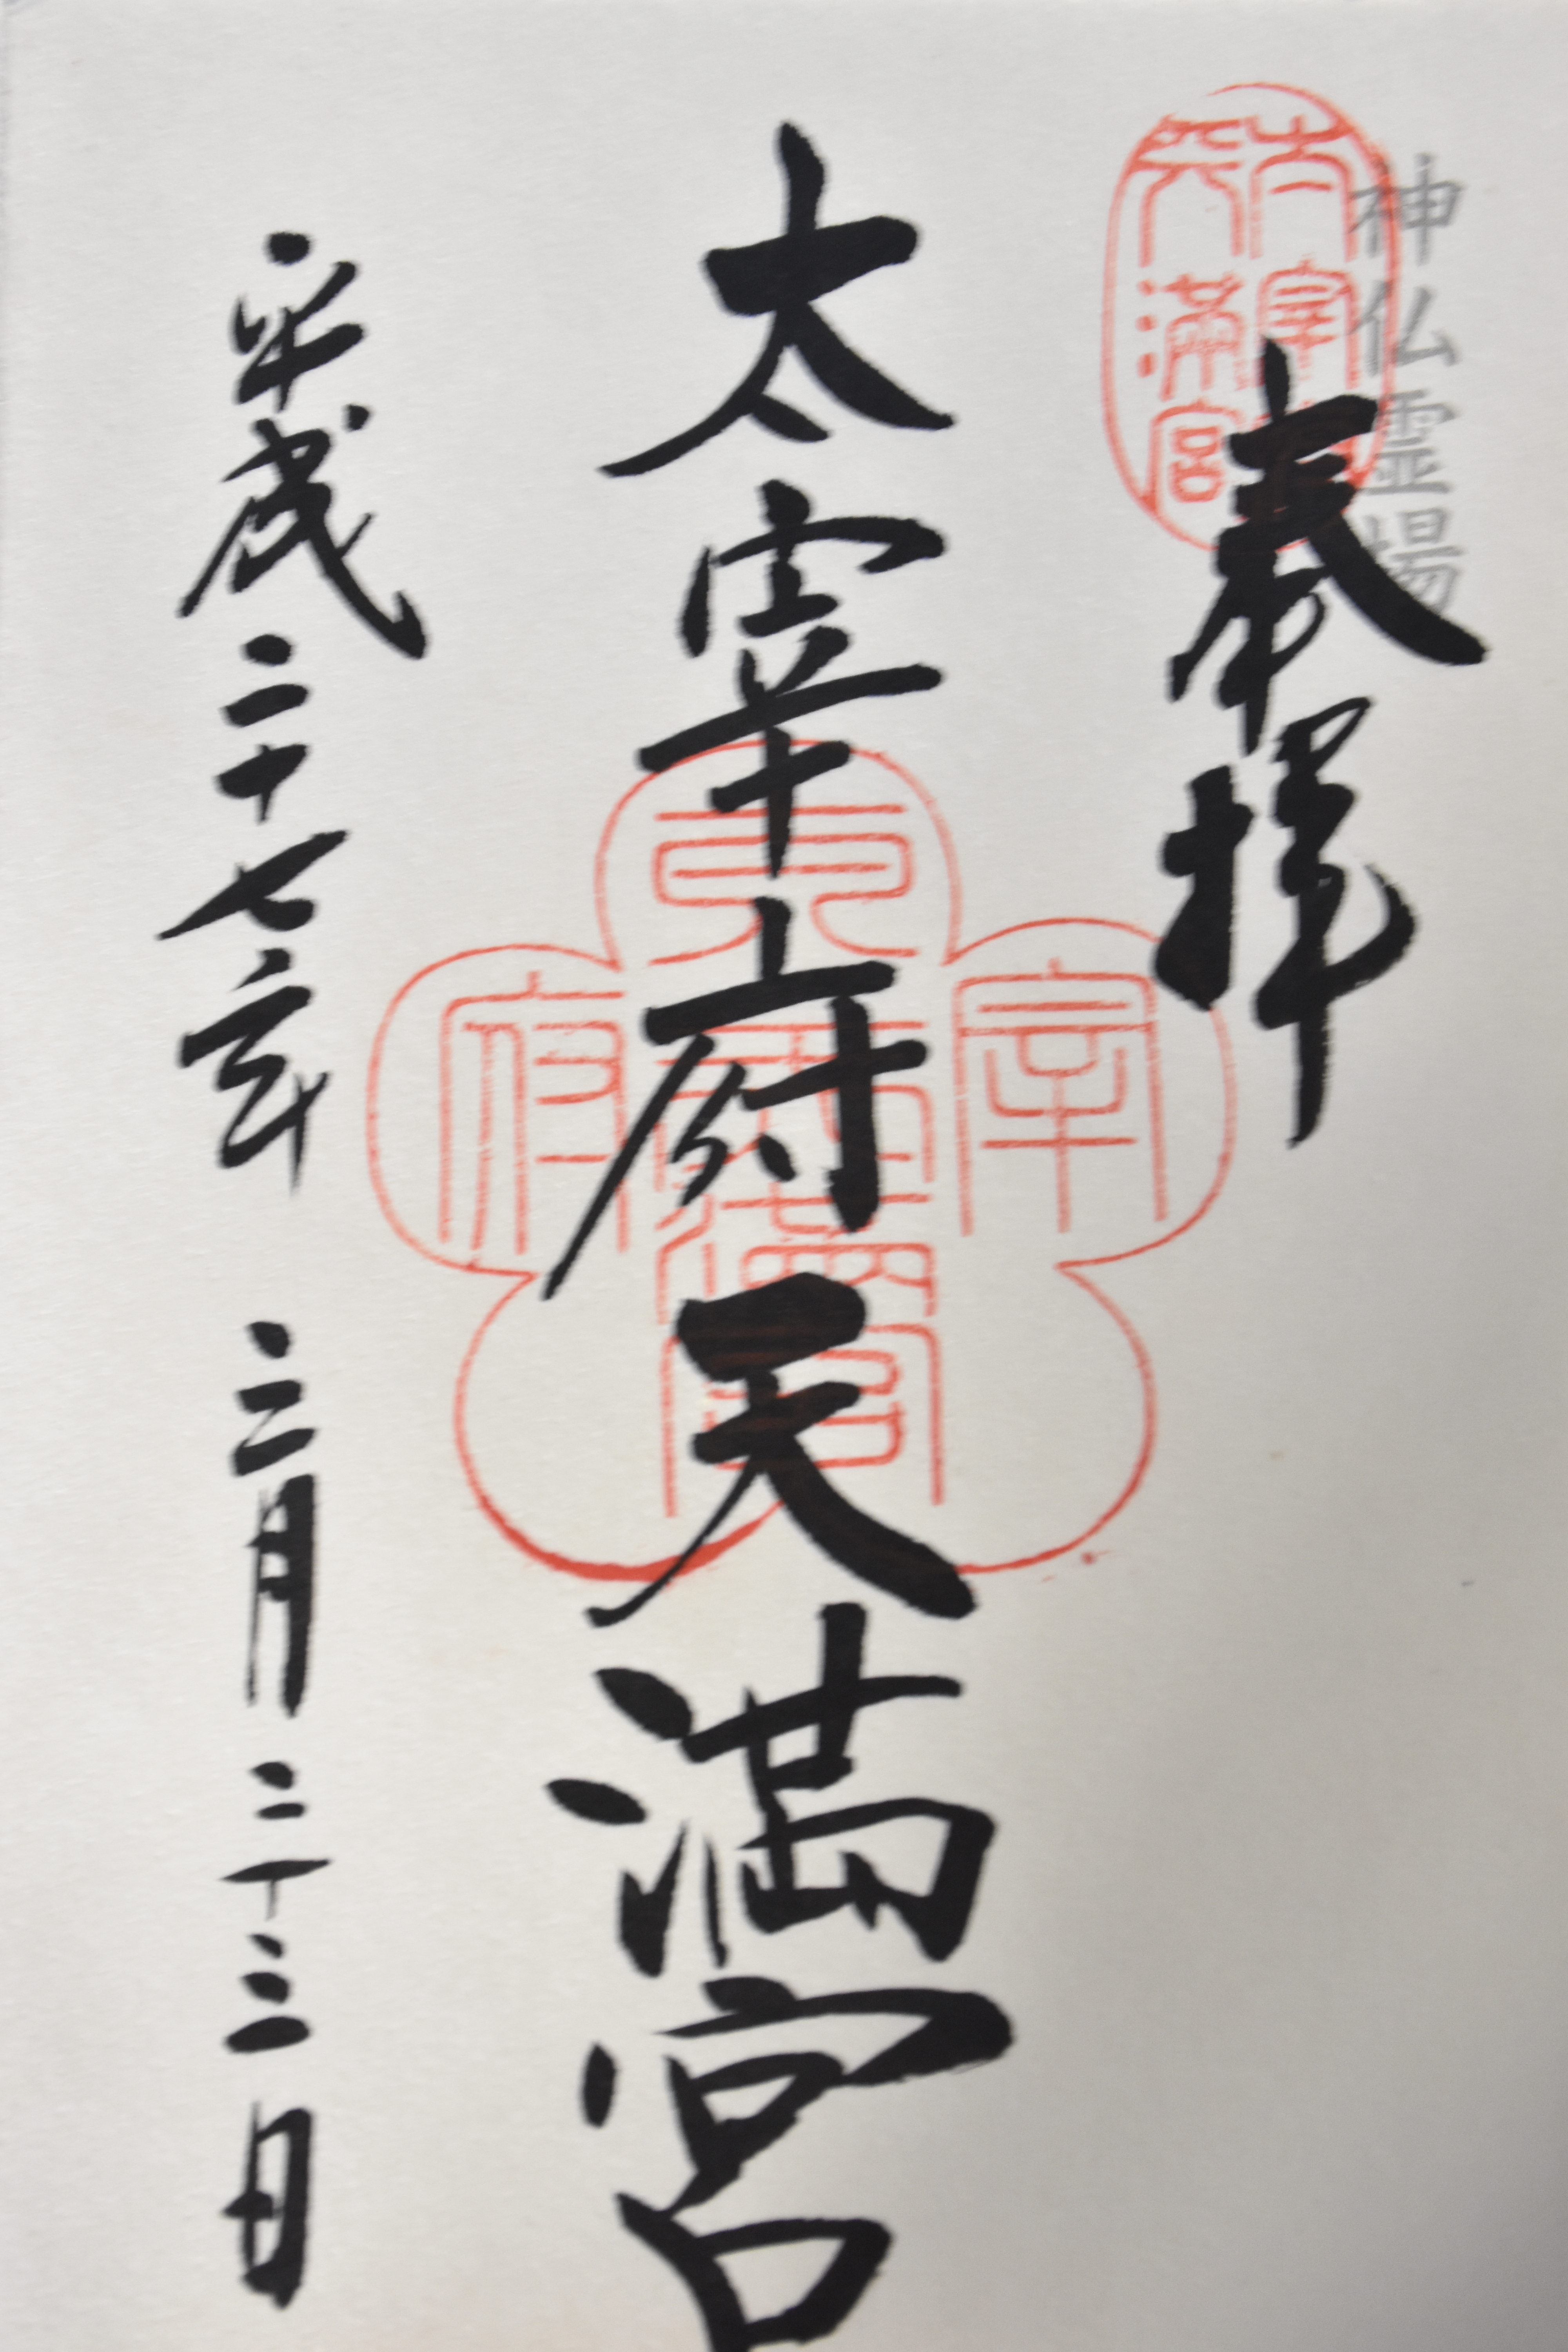 神仏霊場
奉拝
太宰府
天満宮
太宰府天満宮
宰府
平成二十七年 三月二十三日